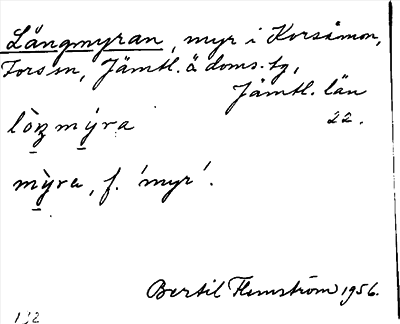 Långmyran, myr i Korsåmon,
Fors sn, Jämtl. ö doms. tg,
Jämtl. län
22.
lòŋ mýra
mỳra, f. 'myr'.
Bertil Flemström 1956.
132